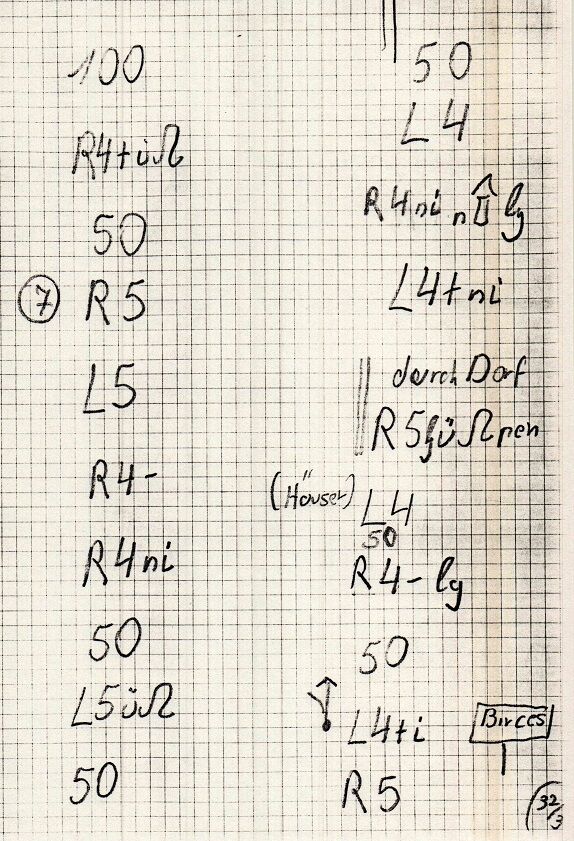 100
R4+üΩ
50
7 R5
L5
R4-
R4ni
50
L5üΩ
50
50
L4
R4ni n lg
L4+ni
durch Dorf
R5 üΩpen
(Häuser) L4
50
R4- lg
50
L4+i
Birces
R5
32/3